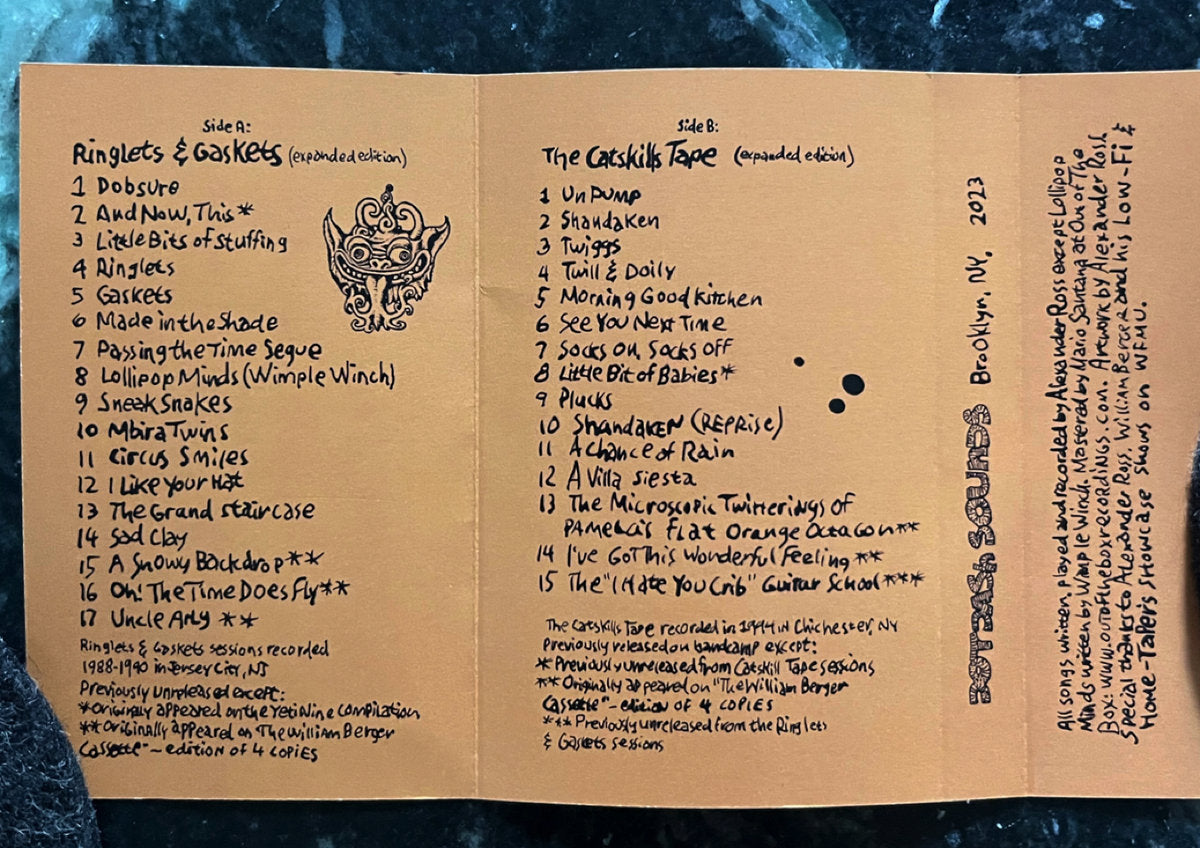 Side A:
Ringlets & Gaskets (expanded edition)
1 Dobsure
2 And Now, This*
3 Little Bits of Stuffing
4 Ringlets
5 Gaskets
6 Made in the Shade
7 Passing the Time Segue
8 Lollipop Minds (Wimple Winch)
9 Sneak Snakes
10 Mbira Twins
11 Circus Smiles
12 I Like Your Hat
13 The Grand Staircase
14 Sad Clay
15 A Snowy Backdrop**
16 Oh! The Time Does Fly**
17 Uncle Arly **
Ringlets & Gaskets sessions recorded
1988-1990 in Jersey City, NJ
Previously unreleased except:
*Originally appeared on the Yeti Nine compilation
**Originally appeared on The William Berger
Cassette" – edition of 4 copies
Side B:
The Catskills Tape (expanded edition)
1 Un Pump
2 Shandaken
3 Twiggs
4 Twill & Doily
5 Morning Good Kitchen
6 See You Next Time
7 Socks On, Socks Off
8 Little Bit of Babies*
9 Plucks
10 Shandaken (Reprise)
11 A Chance of Rain
12 A Villa Siesta
13 The Microscopic Twitterings of
Pamela's Flat Orange Octagon**
14 I've Got This Wonderful Feeling **
15 The "I Hate You Crib" Guitar School***
The Catskills Tape recorded in 1994 in Chichester, NY
Previously released on bandcamp except:
*Previously unreleased from Catskill Tape sessions
**Originally appeared on "The William Berger
Cassette" – edition of 4 copies
*** Previously unreleased from the Ringlets
& Gaskets sessions
Sounds Brooklyn, NY, 2023
All songs written, played and recorded by Alexander Ross except Lollipop
Minds written by Wimple Winch. Mastered by Mario Santana at Out of The
Box: www.outoftheboxrecordings.com. Artwork by Alexander Ross
Special thanks to Alexander Ross, William Berger and his Low-Fi &
Home-Taper's Showcase shows on WFMU.